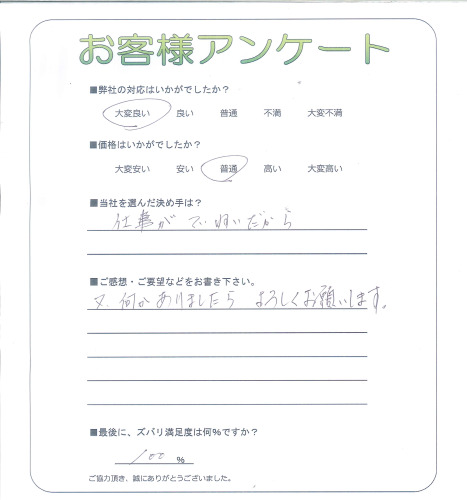 お客様アンケート
■弊社の対応はいかがでしたか？
大変良い 良い 普通 不満 大変不満
■価格はいかがでしたか？
大変安い 安い 普通 高い 大変高い
■当社を選んだ決め手は？
仕事がてい寧いだから
■ご感想・ご要望などをお書き下さい。
又、何かありましたら よろしくお願いします。
■最後に、ズバリ満足度は何%ですか？
100 %
ご協力頂き、誠にありがとうございました。